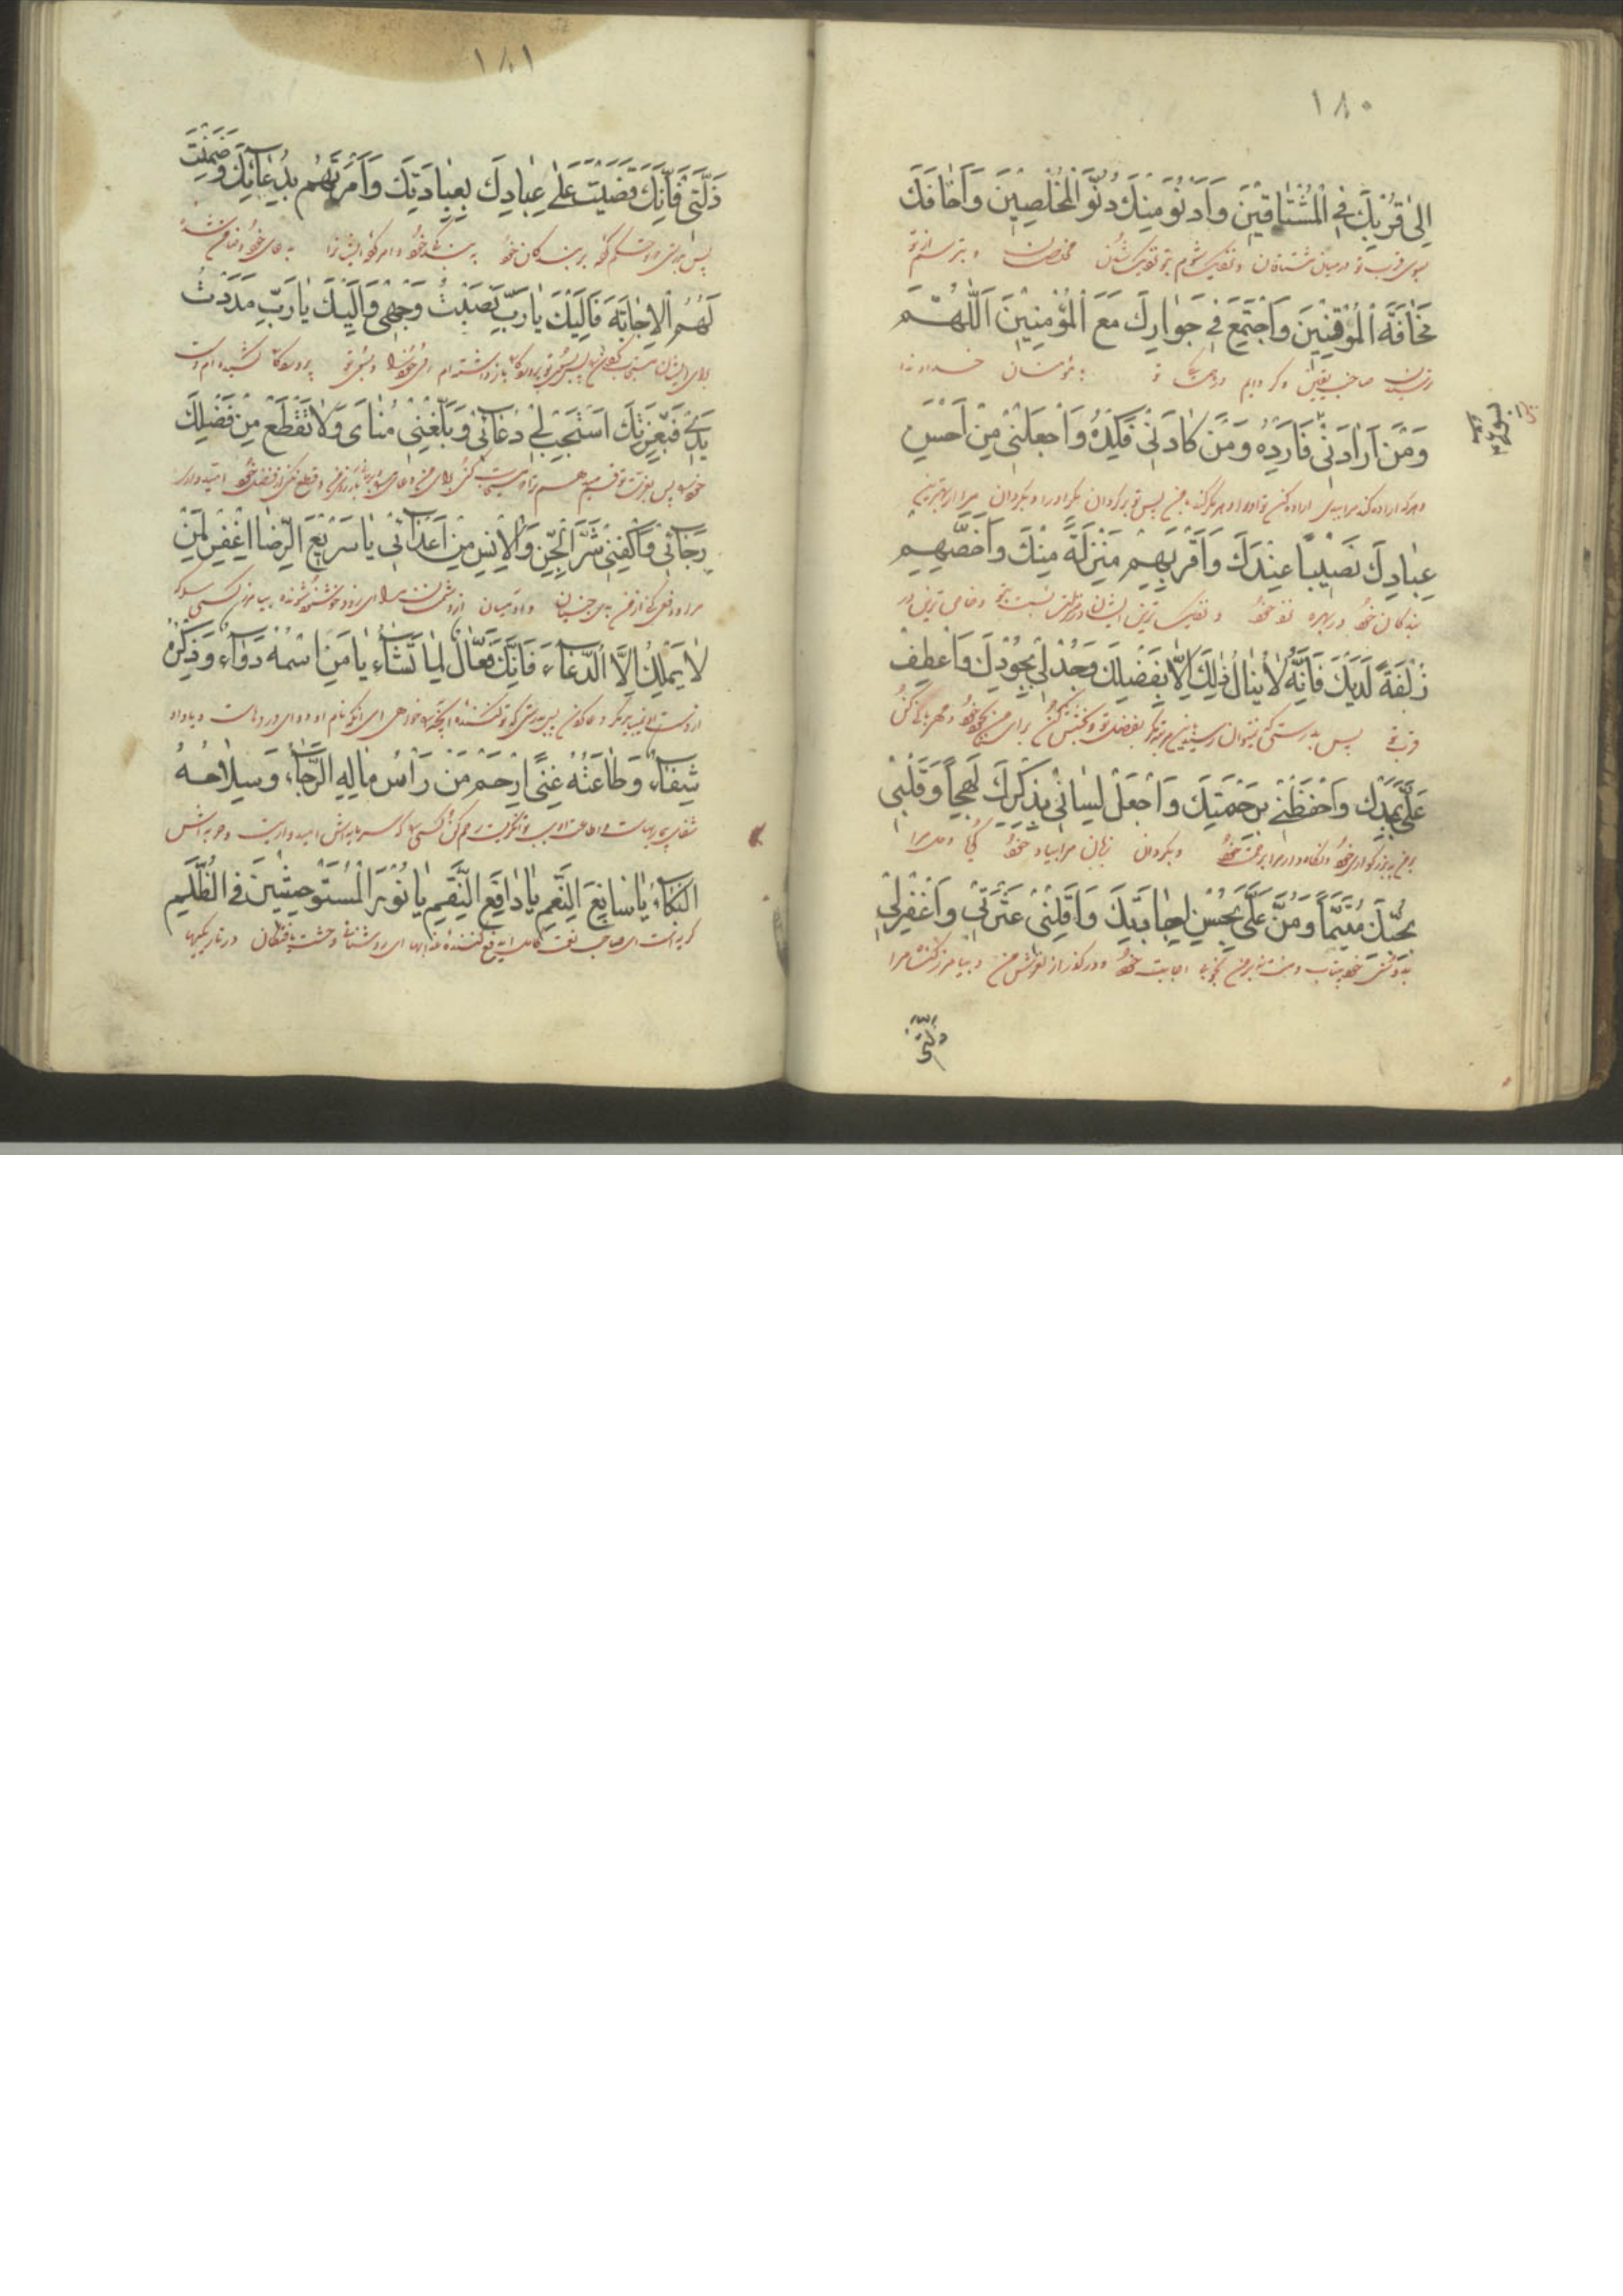 ١٨٠
اِلىٰ قُرْبِكَ فِى الْمُشْتٰاقينَ وَاَدْنُوَ مِنْكَ دُنُوَّ الْمُخْلِصينَ وَاَخٰافَكَ
بسوی قرب تو در میان مشتاقان و نزدیک شوم بتو نزدیک شدن مخلصان و بترسم از تو
مَخٰافَةَ الْمُوقِنينَ وَاَجْتَمِعَ فى جِوٰارِكَ مَعَ الْمُؤْمِنينَ اَللّٰهُمَّ
ترسیدن صاحب یقینان و کرد ایم در تو به مؤمنان خداوندا
وَمَنْ اَرٰادَنى بسوء فَاَرِدْهُ وَمَنْ كٰادَنى فَكِدْهُ وَاجْعَلْنى مِنْ اَحْسَنِ
و هرکه اراده کند مرا ببدی اراده کن تو او را و هر که مکر کند با من پس تو مکر او را و بکردان مرا از بهترین
عِبٰادِكَ نَصيباً عِنْدَكَ وَاَقْرَبِهِمْ مَنْزِلَةً مِنْكَ وَاَخَصِّهِمْ
بندکان خود در بهره نزد خود و نزدیک ترین ایشان در منزلت نسبت بتو و خاص ترین در
زُلْفَةً لَدَيْكَ فَاِنَّهُ لاٰ يُنٰالُ ذٰلِكَ اِلاّٰ بِفَضْلِكَ وَجُدْ لى بِجُودِكَ وَاعْطِفْ
قرب تو پس بدرستی که نتوان رسید باین مرتبه مکر بفضل تو و بخشش کن برای من بجود خود و مهربانی کن
عَلَىَّ بِمَجْدِكَ وَاحْفَظْنى بِرَحْمَتِكَ وَاجْعَلْ لِسٰانى بِذِكْرِكَ لَهِجاً وَقَلْبى
بر من به بزرکواری خود و نکاه دار مرا برحمت خود و بکردان زبان مرا بیاد خود کویا و دل مرا
بِحُبِّكَ مُتَيَّماً وَمُنَّ عَلَىَّ بِحُسْنِ اِجٰابَتِكَ وَاَقِلْنى عَثْرَتى وَاغْفِرْ لى
بدوستی خود بیتاب و منت نه بر من بخوبی اجابت خود و درکذر از لغزش من و بیامرز کناه مرا
زَلَّتى
١٨١
زَلَّتى فَاِنَّكَ قَضَيْتَ عَلىٰ عِبٰادِكَ بِعِبٰادَتِكَ وَاَمَرْتَهُمْ بِدُعٰائِكَ وَضَمِنْتَ
پس بدرستی که تو حکم کرده بر بندکان خود به بندکی خود و امر کرده ایشانرا به دعای خود و ضامن شده
لَهُمُ الْاِجٰابَةَ فَاِلَيْكَ يٰا رَبِّ نَصَبْتُ وَجْهى وَاِلَيْكَ يٰا رَبِّ مَدَدْتُ
برای ایشان پس بسوی تو پروردکارا باز داشته ام روی خود را و بسوی تو پروردکارا کشیده ام دست
يَدى فَبِعِزَّتِكَ اسْتَجِبْ لى دُعٰائى وَبَلِّغْنى مُنٰاىَ وَلاٰ تَقْطَعْ مِنْ فَضْلِكَ
خود را پس بعزت تو قسم میدهم ترا که مستجاب کنی برای من دعای مرا و برسان بآرزوی من و قطع مکن از فضل خود امیدواری
رَجٰائى وَاكْفِنى شَرَّ الْجِنِّ وَالْاِنْسِ مِنْ اَعْدٰائى يٰا سَريعَ الرِّضٰا اِغْفِرْ لِمَنْ
مرا و دفع کن از من بدی جنیان و آدمیان از دشمنان مرا ای زود خوشنود شونده بیامرز کسی را که
لاٰ يَمْلِكُ اِلاَّ الدُّعٰاءَ فَاِنَّكَ فَعّٰالٌ لِمٰا تَشٰاءُ يٰا مَنِ اسْمُهُ دَوٰاءٌ وَذِكْرُهُ
پس بدرستی که تو کننده آنچه خواهی ای آنکه نام او دوای دردهاست و یاد او
شِفٰاءٌ وَطٰاعَتُهُ غِنىً اِرْحَمْ مَنْ رَأْسُ مٰالِهِ الرَّجٰاءُ وَسِلاٰحُهُ
شفای بیماریهاست و اطاعت او سبب توانکریست رحم کن کسی را که سرمایه اش امیدواریست و حربه اش
الْبُكٰاءُ يٰا سٰابِغَ النِّعَمِ يٰا دٰافِعَ النِّقَمِ يٰا نُورَ الْمُسْتَوْحِشينَ فِى الظُّلَمِ
کریه است ای صاحب نعمت کامل ای دفع کننده عذابها ای روشنائی وحشت یافتکان در تاریکیها